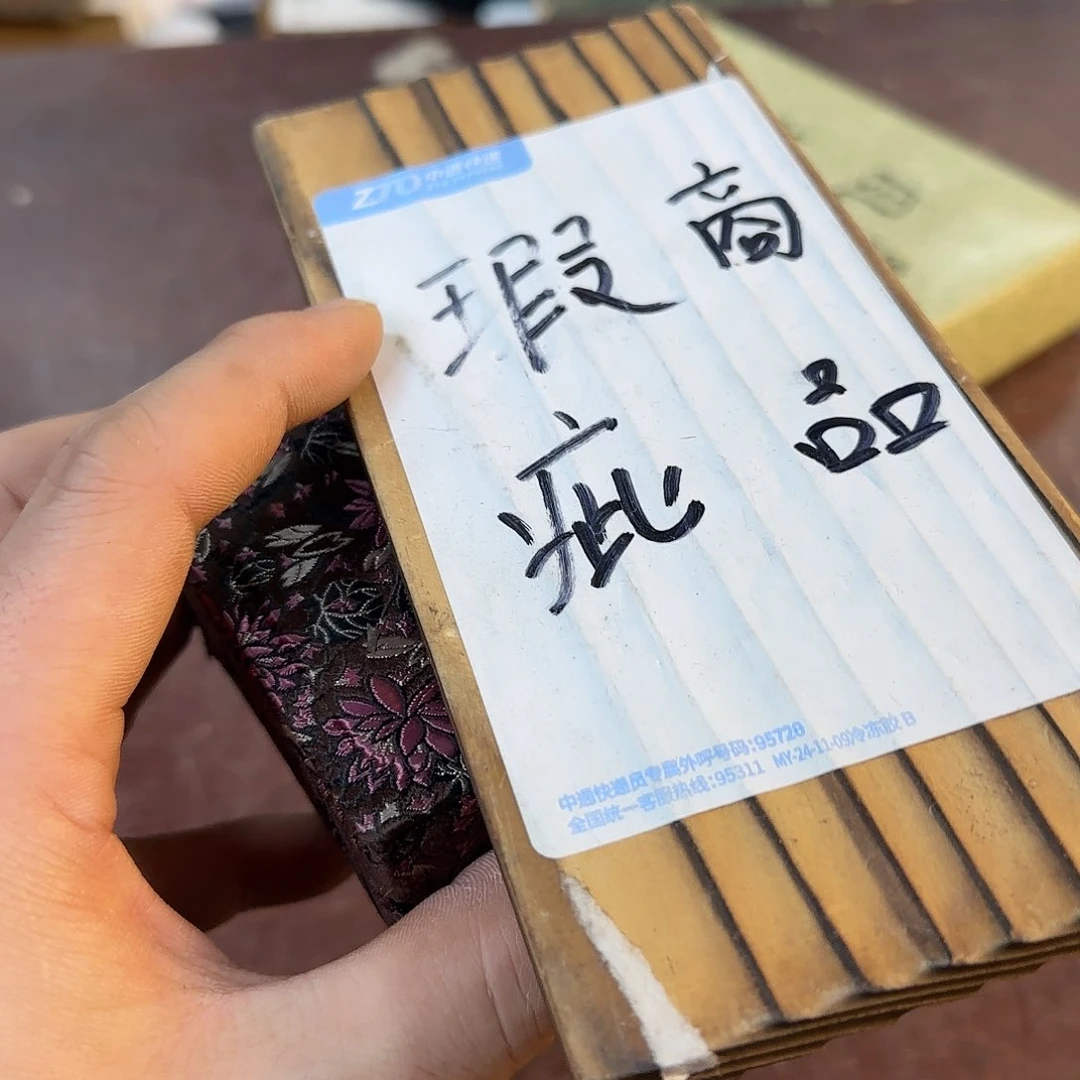 ZTO中通快递
瑕疵
商品
中通快递员专属外呼号码:95720
全国统一客服热线:95311 MY-24-11-09冷冻胶B